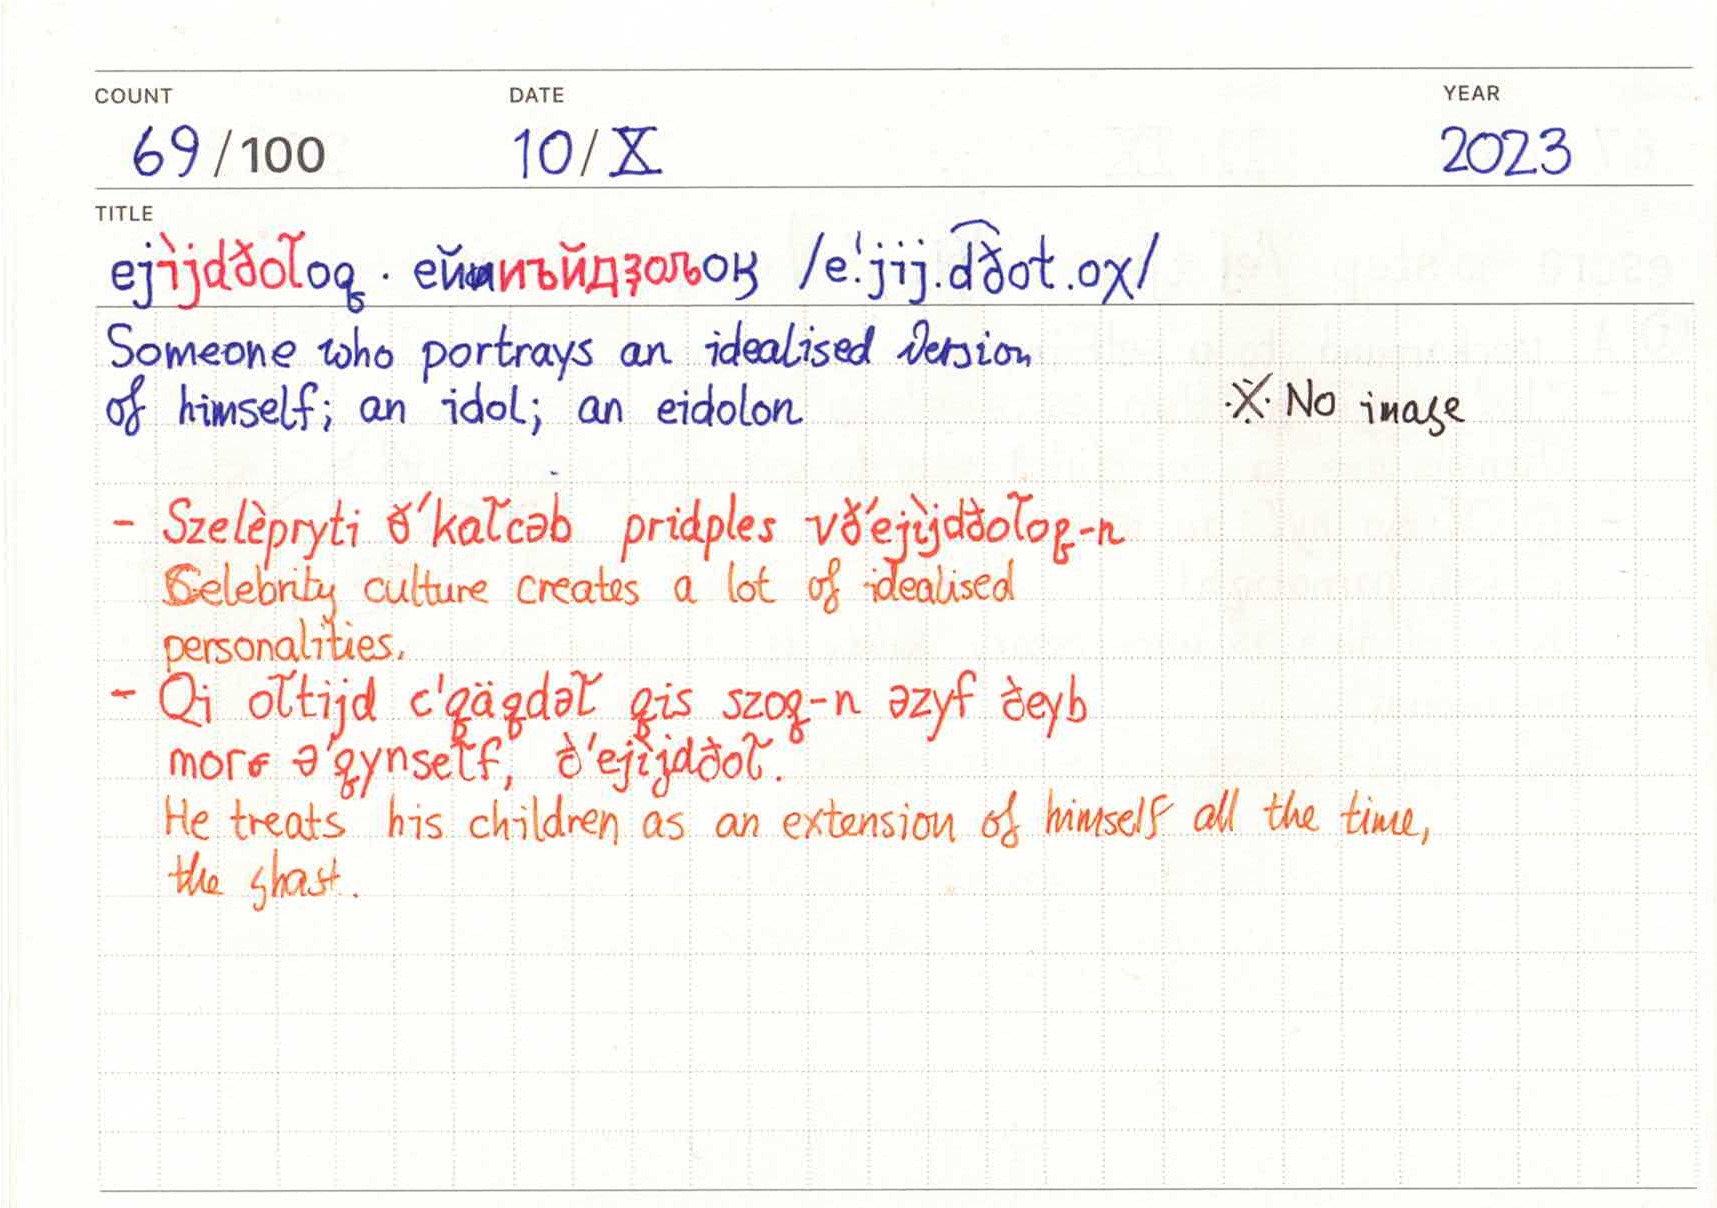 COUNT DATE YEAR
69/100 10/X 2023
TITLE
ejìjdðol̃oq · /e.ˈjij.d͡ðot.oχ/
Someone who portrays an idealised version
of himself; an idol; an eidolon
※ No image
- Szelèpryti ð'kal̃cəb pridples vð'ejìjdðol̃oq-n
Celebrity culture creates a lot of idealised
personalities.
- Qi ol̃tijd c'qäqdəl̃ qis szoq-n əzyf ðeyb
more ə'qynsel̃f, ð'ejìjdðol̃.
He treats his children as an extension of himself all the time,
the ghast.